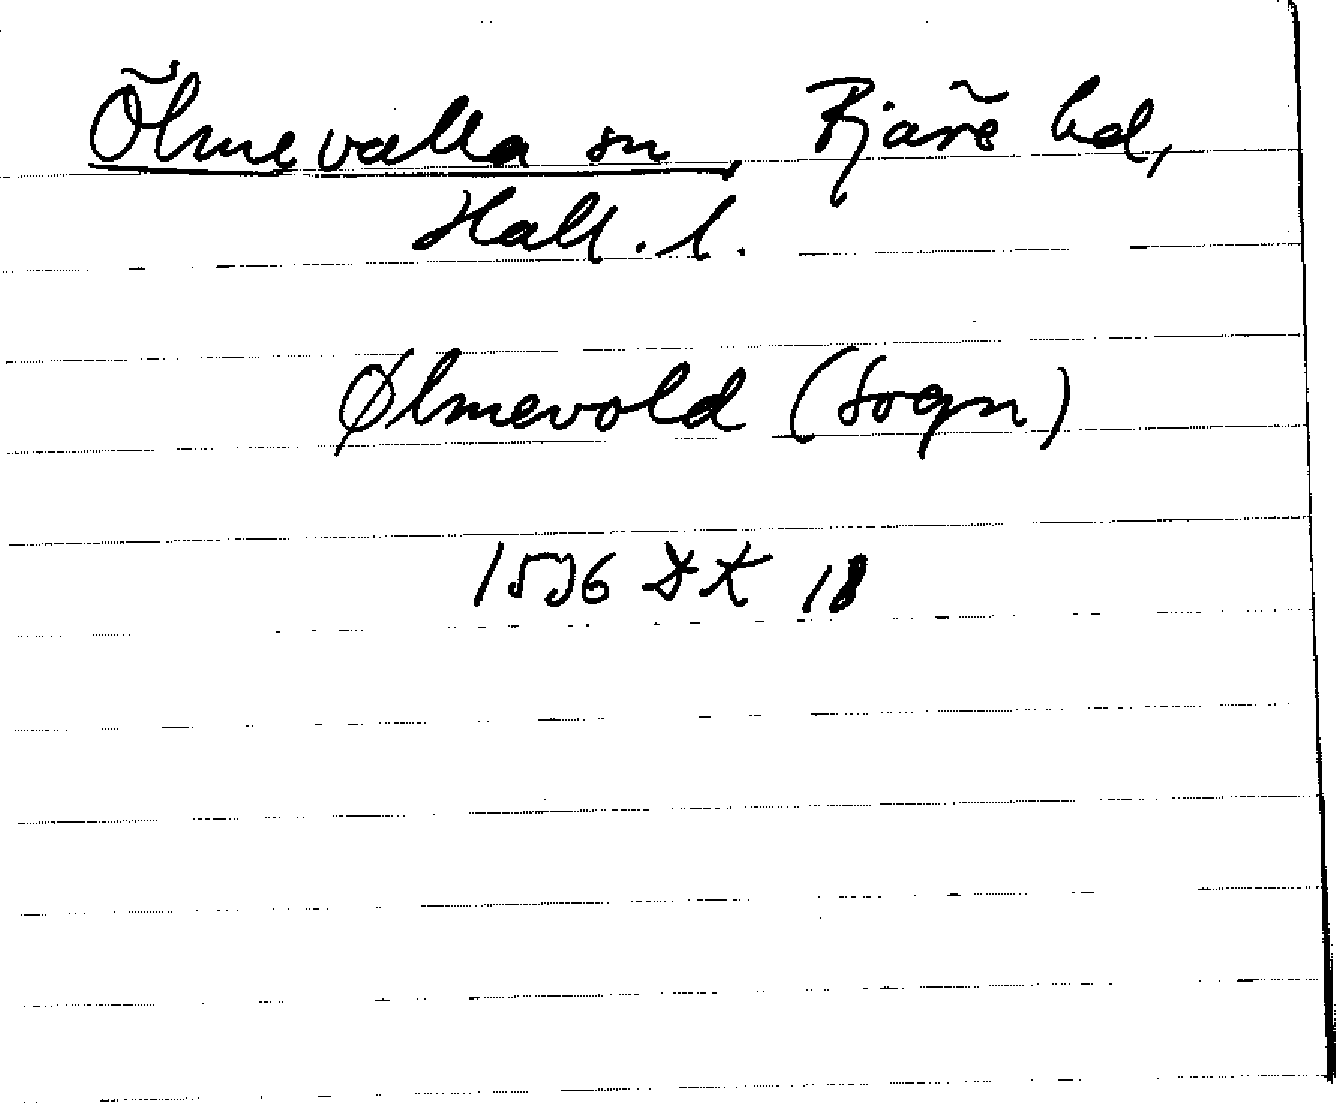 Ölmevalla sn, Fjäre hd,
Hall. l.
Ølmevold (Sogn)
DK 18